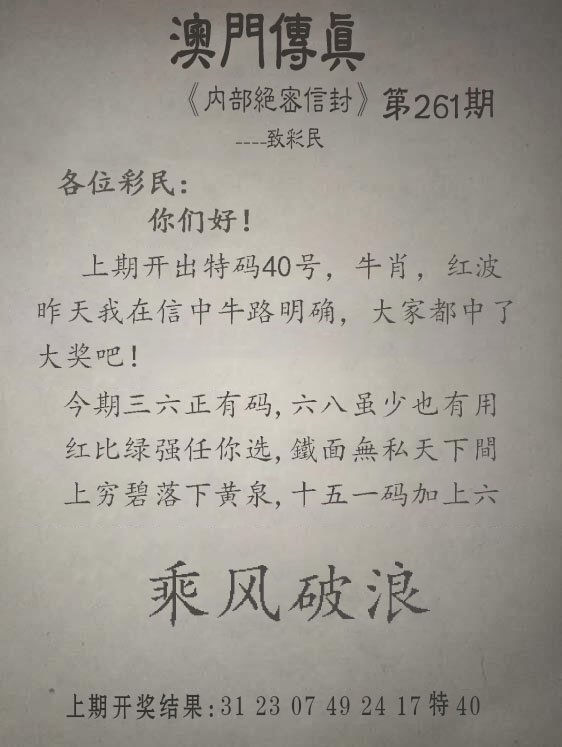 澳門傳眞
《内部絕密信封》第261期
----致彩民
各位彩民：
你们好！
上期开出特码40号，牛肖，红波
昨天我在信中牛路明确，大家都中了
大奖吧！
今期三六正有码，六八虽少也有用
红比绿强任你选，鐵面無私天下間
上穷碧落下黄泉，十五一码加上六
乘风破浪
上期开奖结果：31 23 07 49 24 17特40